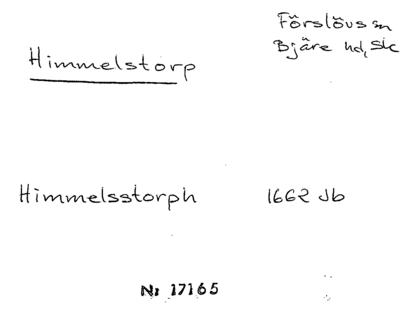 Himmelstorp
Förslövs sn
Bjäre hd, Sk
Himmelsstorph 1662 Jb
Nr 17165